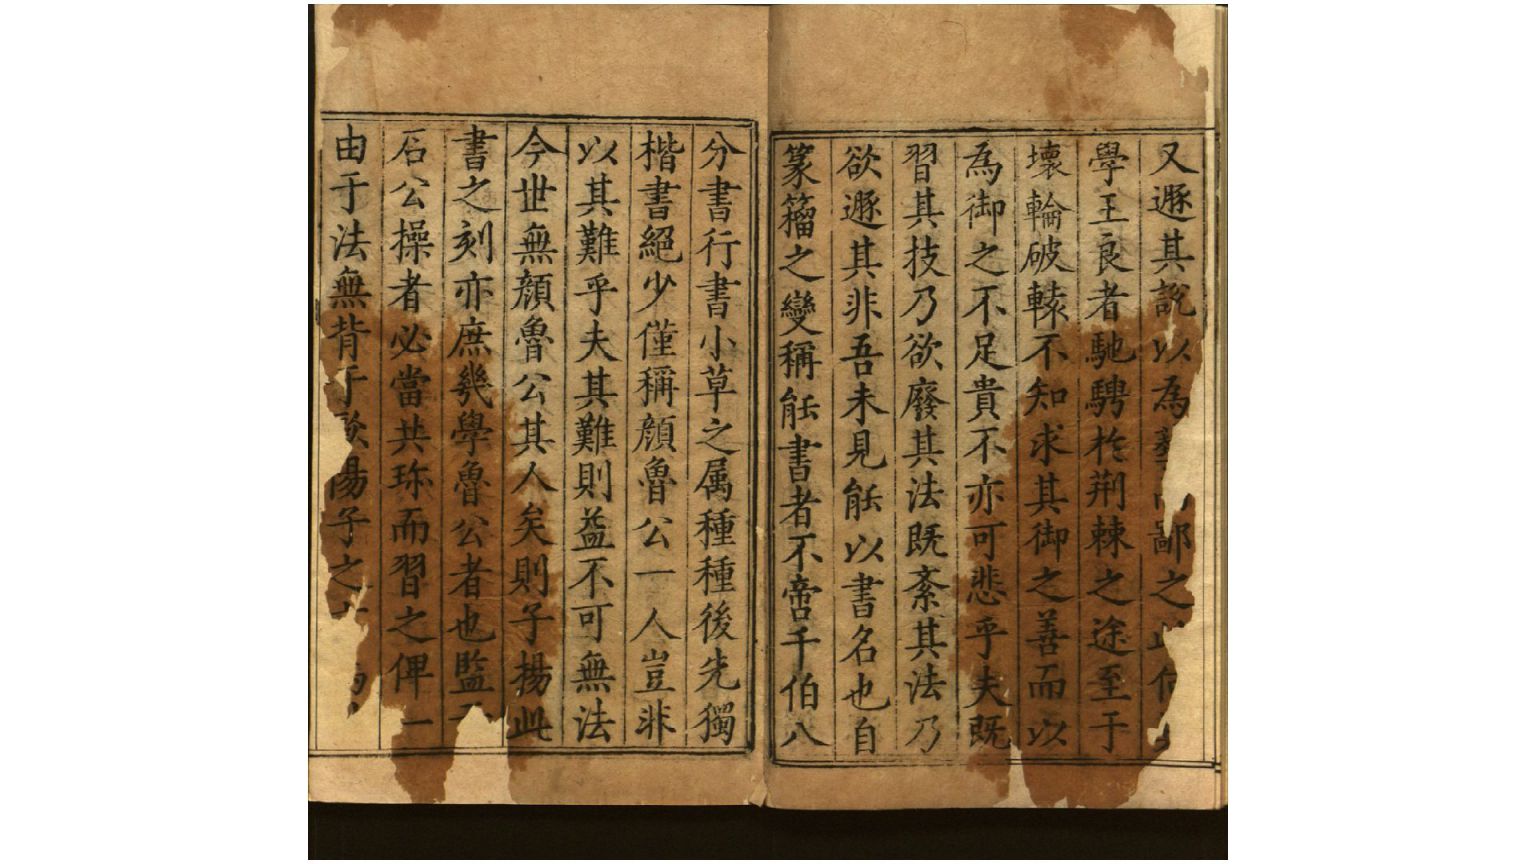 又遯其說以為之
學王良者馳騁於荆棘之途至于
壞輪破轅不知求其御之善而以
為御之不足貴不亦可悲乎夫既
習其技乃欲廢其法既紊其法乃
欲遯其非吾未見能以書名也自
篆籀之變稱能書者不啻千伯八
分書行書小草之属種種後先獨
楷書絕少僅稱顔魯公一人豈非
以其難乎夫其難則益不可無法
今世無顔魯公其人矣則子揚此
書之刻亦庶幾學魯公者也監
石公操者必當共珎而習之俾一
由于法無背于陽子之